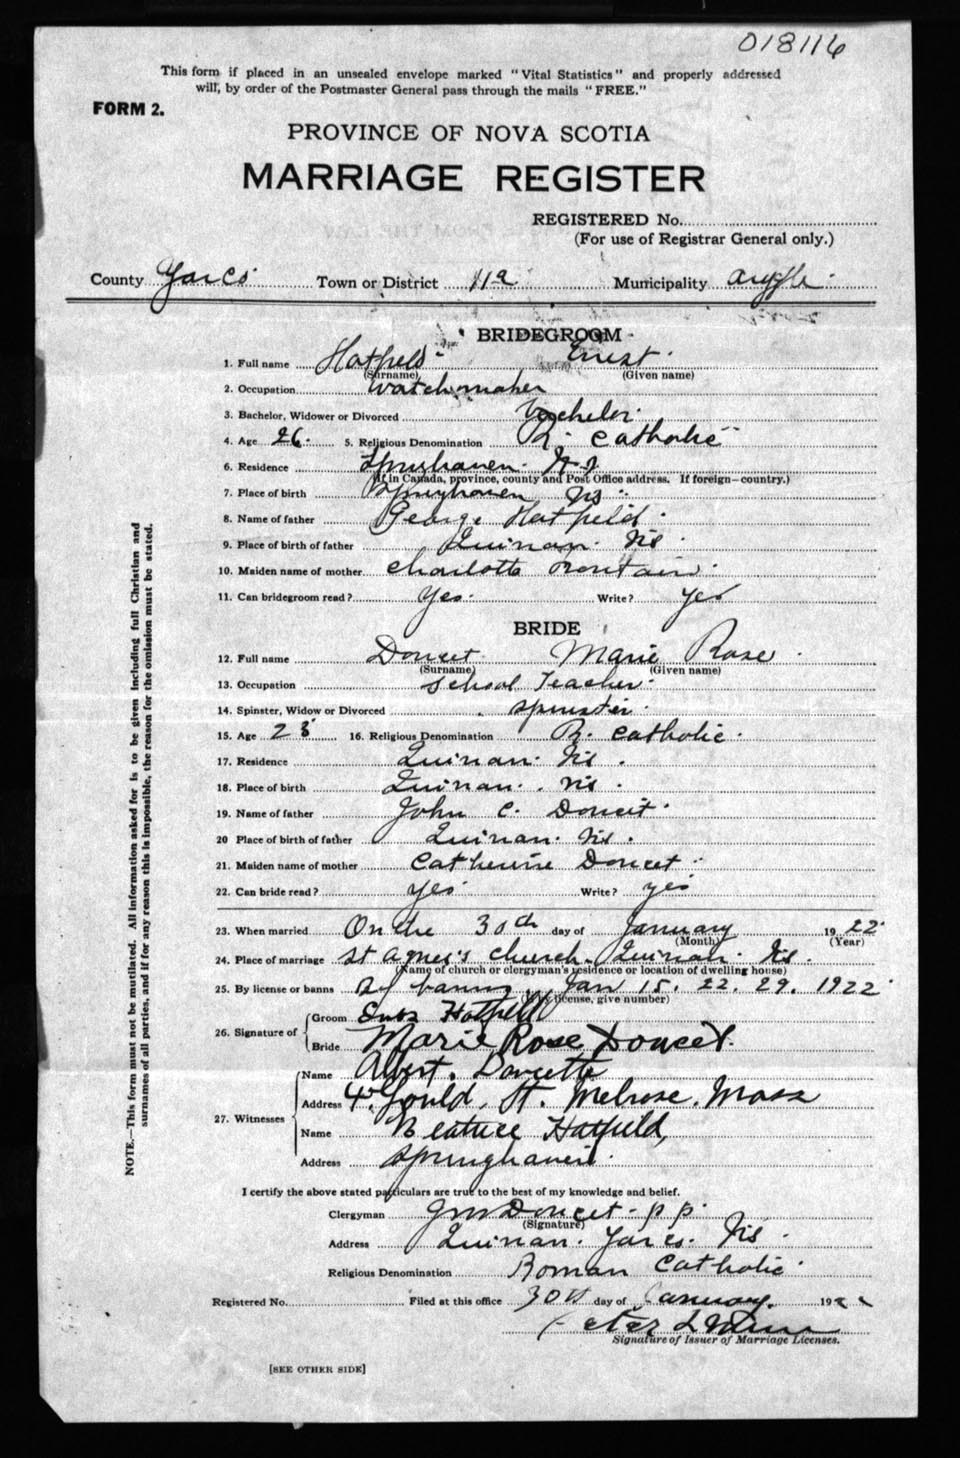 018116
This form if placed in an unsealed envelope marked "Vital Statistics" and properly addressed
will, by order of the Postmaster General pass through the mails "FREE."
FORM 2.
PROVINCE OF NOVA SCOTIA
MARRIAGE REGISTER
REGISTERED No.
(For use of Registrar General only.)
County Yar Co. Town or District 11a Municipality Argyle
BRIDEGROOM
1. Full name Hatfield Ernest
(Surname) (Given name)
2. Occupation Watchmaker
3. Bachelor, Widower or Divorced Bachelor
4. Age 26 5. Religious Denomination R. Catholic
6. Residence Springhaven N S
(If in Canada, province, county and Post Office address. If foreign—country.)
7. Place of birth Springhaven Ns
8. Name of father George Hatfield
9. Place of birth of father Quinan Ns
10. Maiden name of mother Charlotte
11. Can bridegroom read? Yes Write? Yes
BRIDE
12. Full name Doucet Marie Rose
(Surname) (Given name)
13. Occupation School Teacher
14. Spinster, Widow or Divorced Spinster
15. Age 23 16. Religious Denomination R. Catholic
17. Residence Quinan Ns
18. Place of birth Quinan Ns
19. Name of father John C. Doucet
20 Place of birth of father Quinan Ns
21. Maiden name of mother Catherine Doucet
22. Can bride read? yes Write? yes
23. When married On the 30th day of January 1922
(Month) (Year)
24. Place of marriage St Agnes's Church Quinan Ns
(Name of church or clergyman's residence or location of dwelling house)
25. By license or banns banns Jan 15. 22. 29. 1922
(If by license, give number)
26. Signature of
Groom Hatfield
Bride Marie Rose Doucet.
27. Witnesses
Name Albert. Doucette
Address 4 Gould St. Melrose. Mass
Name Beatrice Hatfield,
Address Springhaven
I certify the above stated particulars are true to the best of my knowledge and belief.
Clergyman Doucet p p
(Signature)
Address Quinan Yar Co. Ns
Religious Denomination Roman Catholic
Registered No. Filed at this office 30th day of January 1922
Peter
Signature of Issuer of Marriage Licenses.
[SEE OTHER SIDE]
NOTE.—This form must not be mutilated. All information asked for is to be given including full Christian and
surnames of all parties, and if for any reason this is impossible, the reason for the omission must be stated.